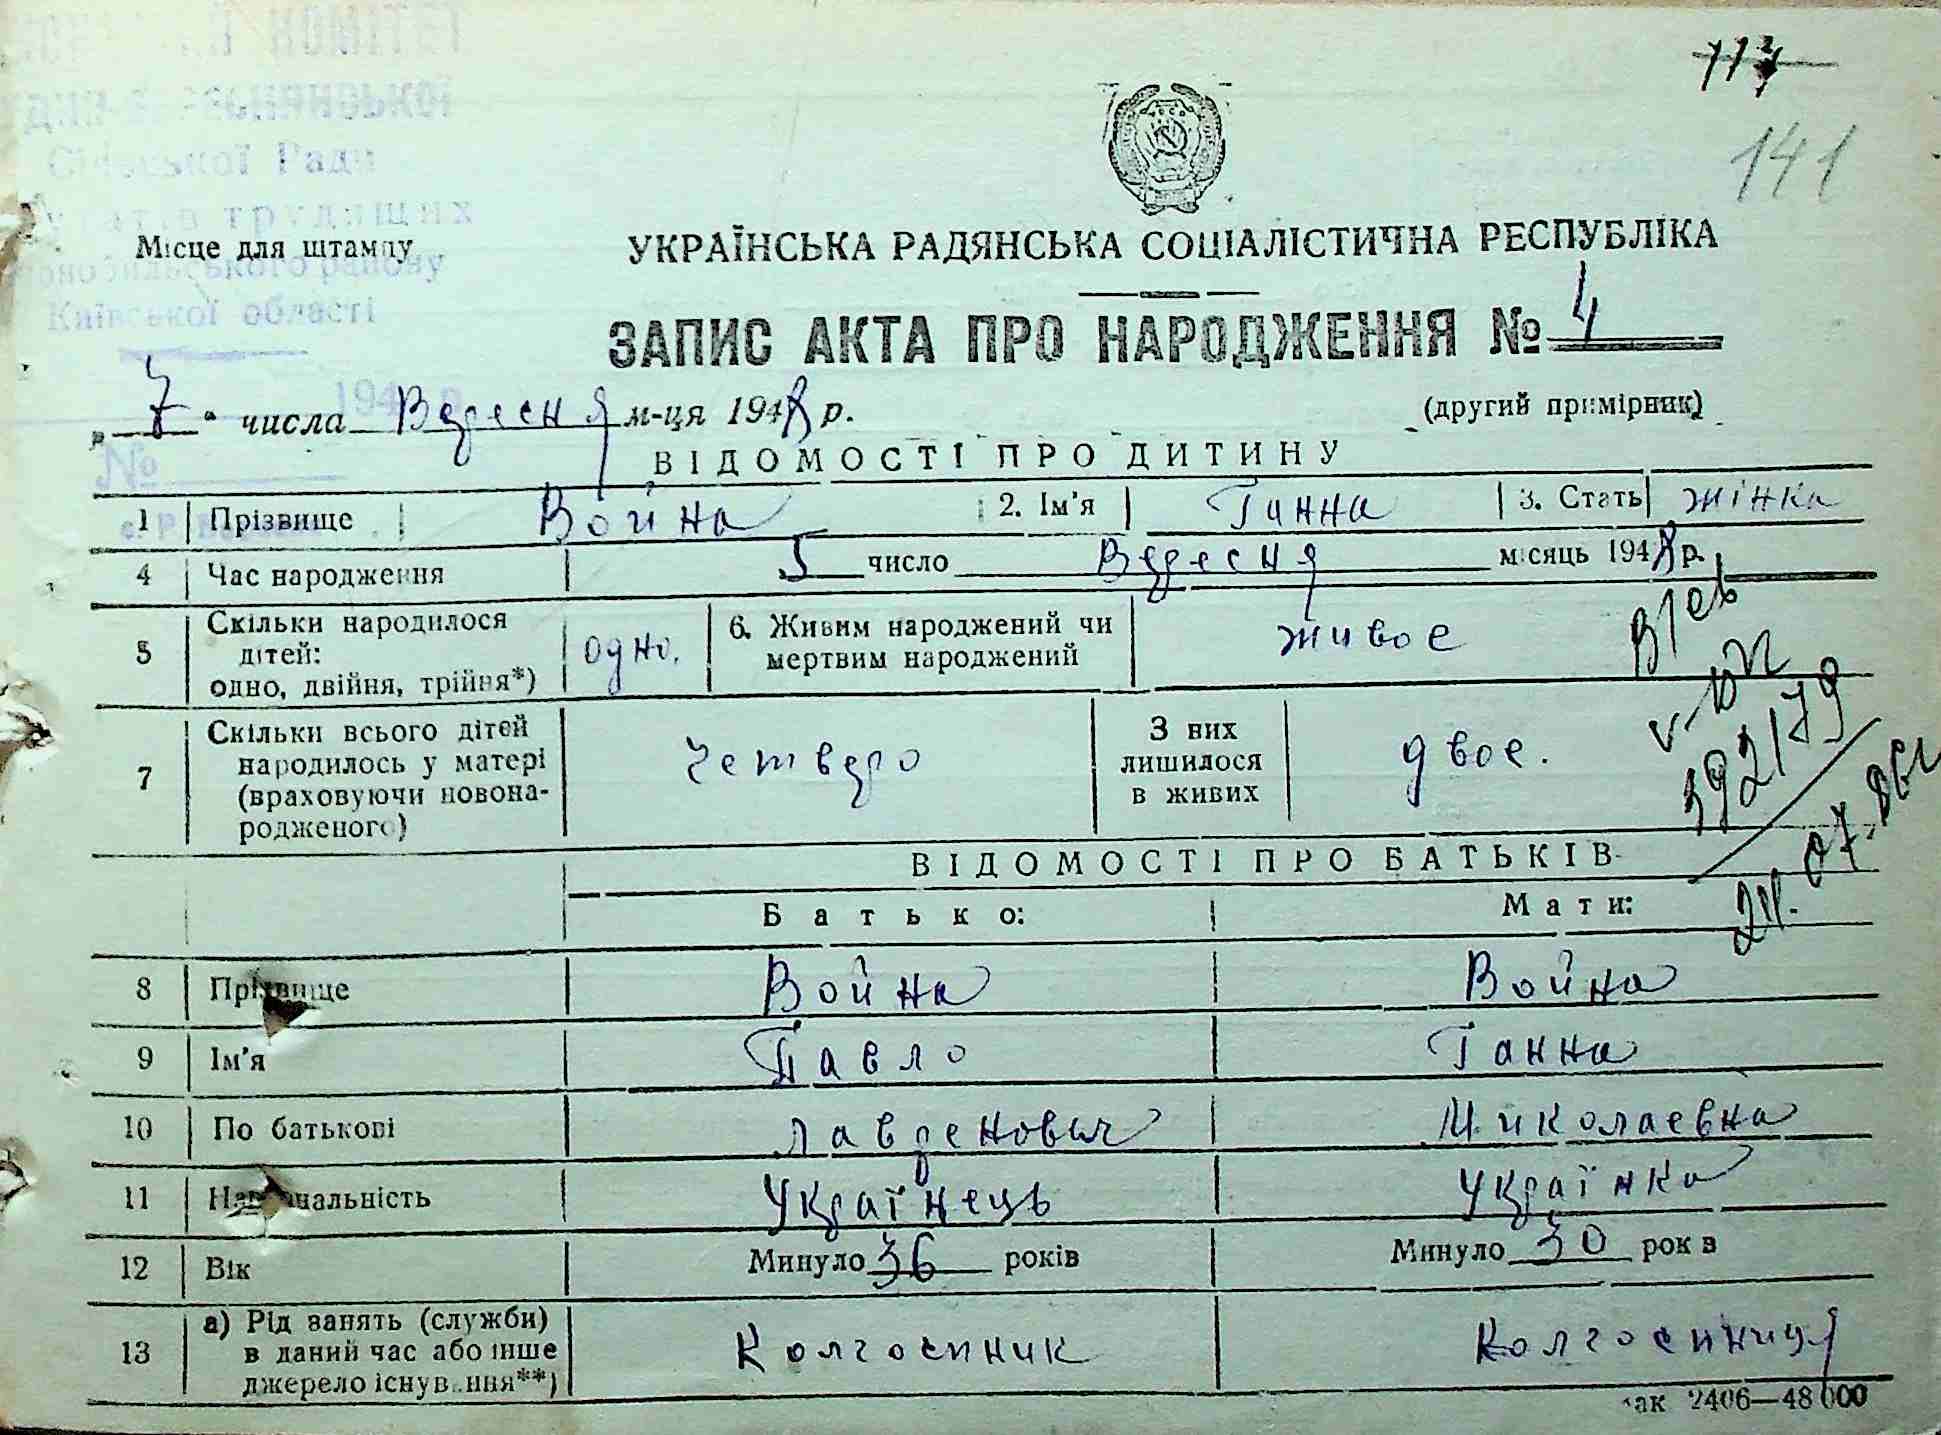 КОМІТЕТ
Сільської Ради
трудящих
Місце для штампу
району
Київської області
117
141
УКРАЇНСЬКА РАДЯНСЬКА СОЦІАЛІСТИЧНА РЕСПУБЛІКА
ЗАПИС АКТА ПРО НАРОДЖЕННЯ № 4
(другий примірник)
„7" числа Вересня м-ця 1948 р.
194 р.
№
ВІДОМОСТІ ПРО ДИТИНУ
1 Прізвище Война 2. Ім'я Ганна 3. Стать жінка
4 Час народження 5 число Вересня місяць 1948 р.
5 Скільки народилося дітей: одно, двійня, трійня*) одно. 6. Живим народжений чи мертвим народжений живое
7 Скільки всього дітей народилось у матері (враховуючи новонародженого) четверо З них лишилося в живих двое.
392179
24.07.86
ВІДОМОСТІ ПРО БАТЬКІВ
Батько: Мати:
8 Прізвище Война Война
9 Ім'я Павло Ганна
10 По батькові Лавренович Миколаевна
11 Національність Українець Українка
12 Вік Минуло 36 років Минуло 30 років
13 а) Рід занять (служби) в даний час або інше джерело існування**) Колгоспник Колгоспниця
Зак 2406—48 000